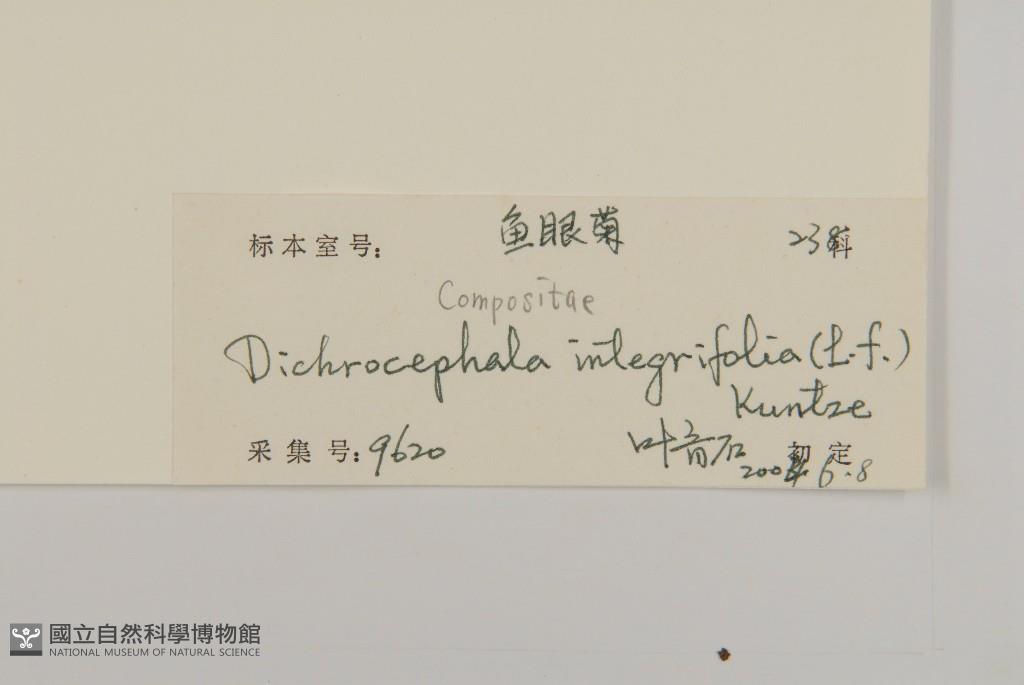 标本室号: 鱼眼菊 238科
Compositae
Dichrocephala integrifolia (L.f.)
Kuntze
采集号: 9620 叶育石 初定
6.8
國立自然科學博物館
NATIONAL MUSEUM OF NATURAL SCIENCE